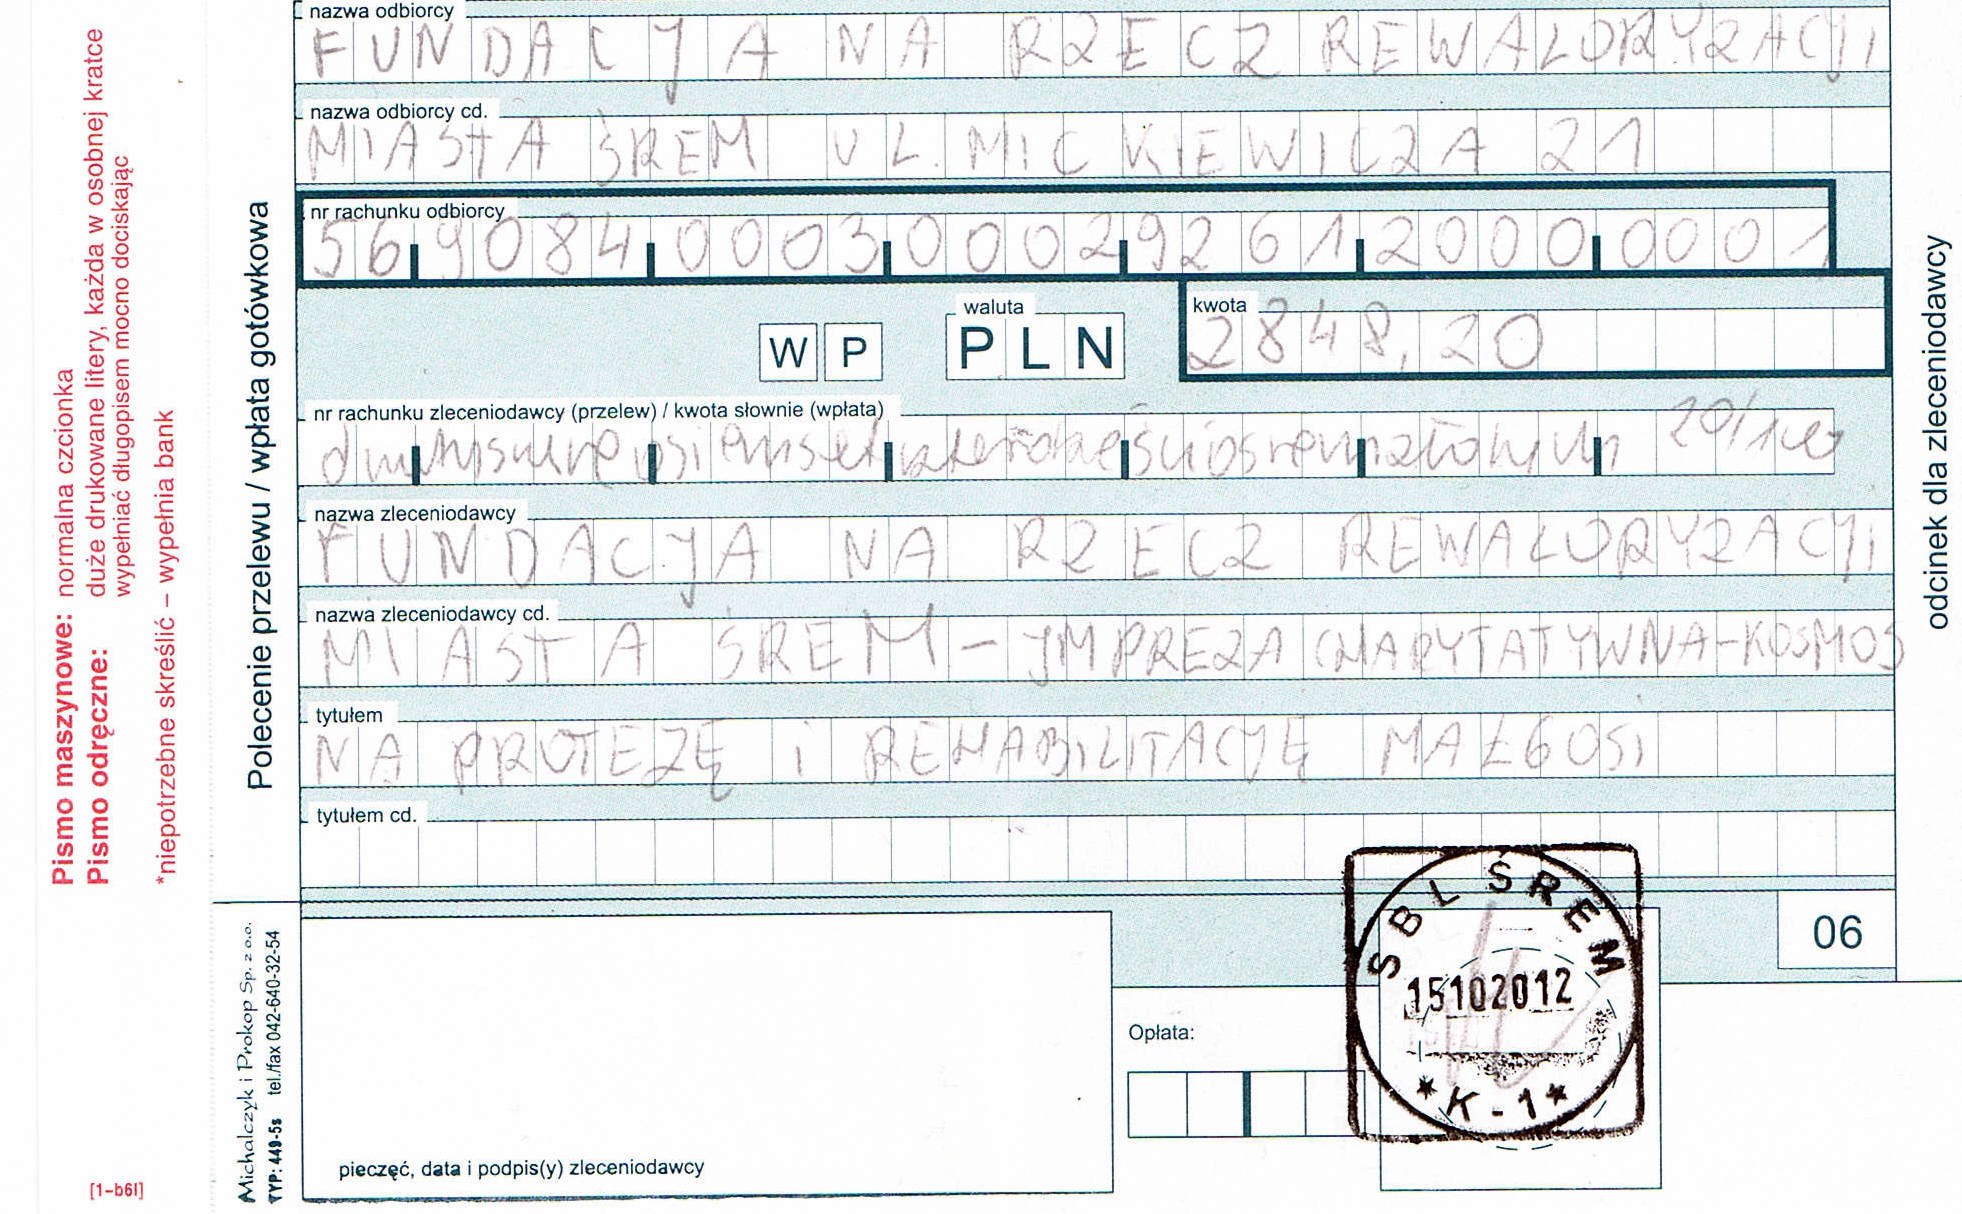 nazwa odbiorcy
FUNDACJA NA RZECZ REWALORYZACJI
nazwa odbiorcy cd.
MIASTA ŚREM UL. MICKIEWICZA 21
nr rachunku odbiorcy
56 9084 0003 0002 9261 2000 0001
waluta
kwota
W P PLN 2848,20
nr rachunku zleceniodawcy (przelew) / kwota słownie (wpłata)
20/100
nazwa zleceniodawcy
FUNDACJA NA RZECZ REWALORYZACJI
nazwa zleceniodawcy cd.
MIASTA ŚREM - IMPREZA CHARYTATYWNA-KOSMOS
tytułem
NA PROTEZĘ I REHABILITACJĘ MAŁGOSI
tytułem cd.
06
Opłata:
pieczęć, data i podpis(y) zleceniodawcy
SBL ŚREM
15102012
* K-1 *
Polecenie przelewu / wpłata gotówkowa
odcinek dla zleceniodawcy
Pismo maszynowe: normalna czcionka
Pismo odręczne: duże drukowane litery, każda w osobnej kratce
wypełniać długopisem mocno dociskając
*niepotrzebne skreślić – wypełnia bank
Michalczyk i Prokop Sp. z o.o.
TYP: 449-5s tel./fax 042-640-32-54
[1-b6l]